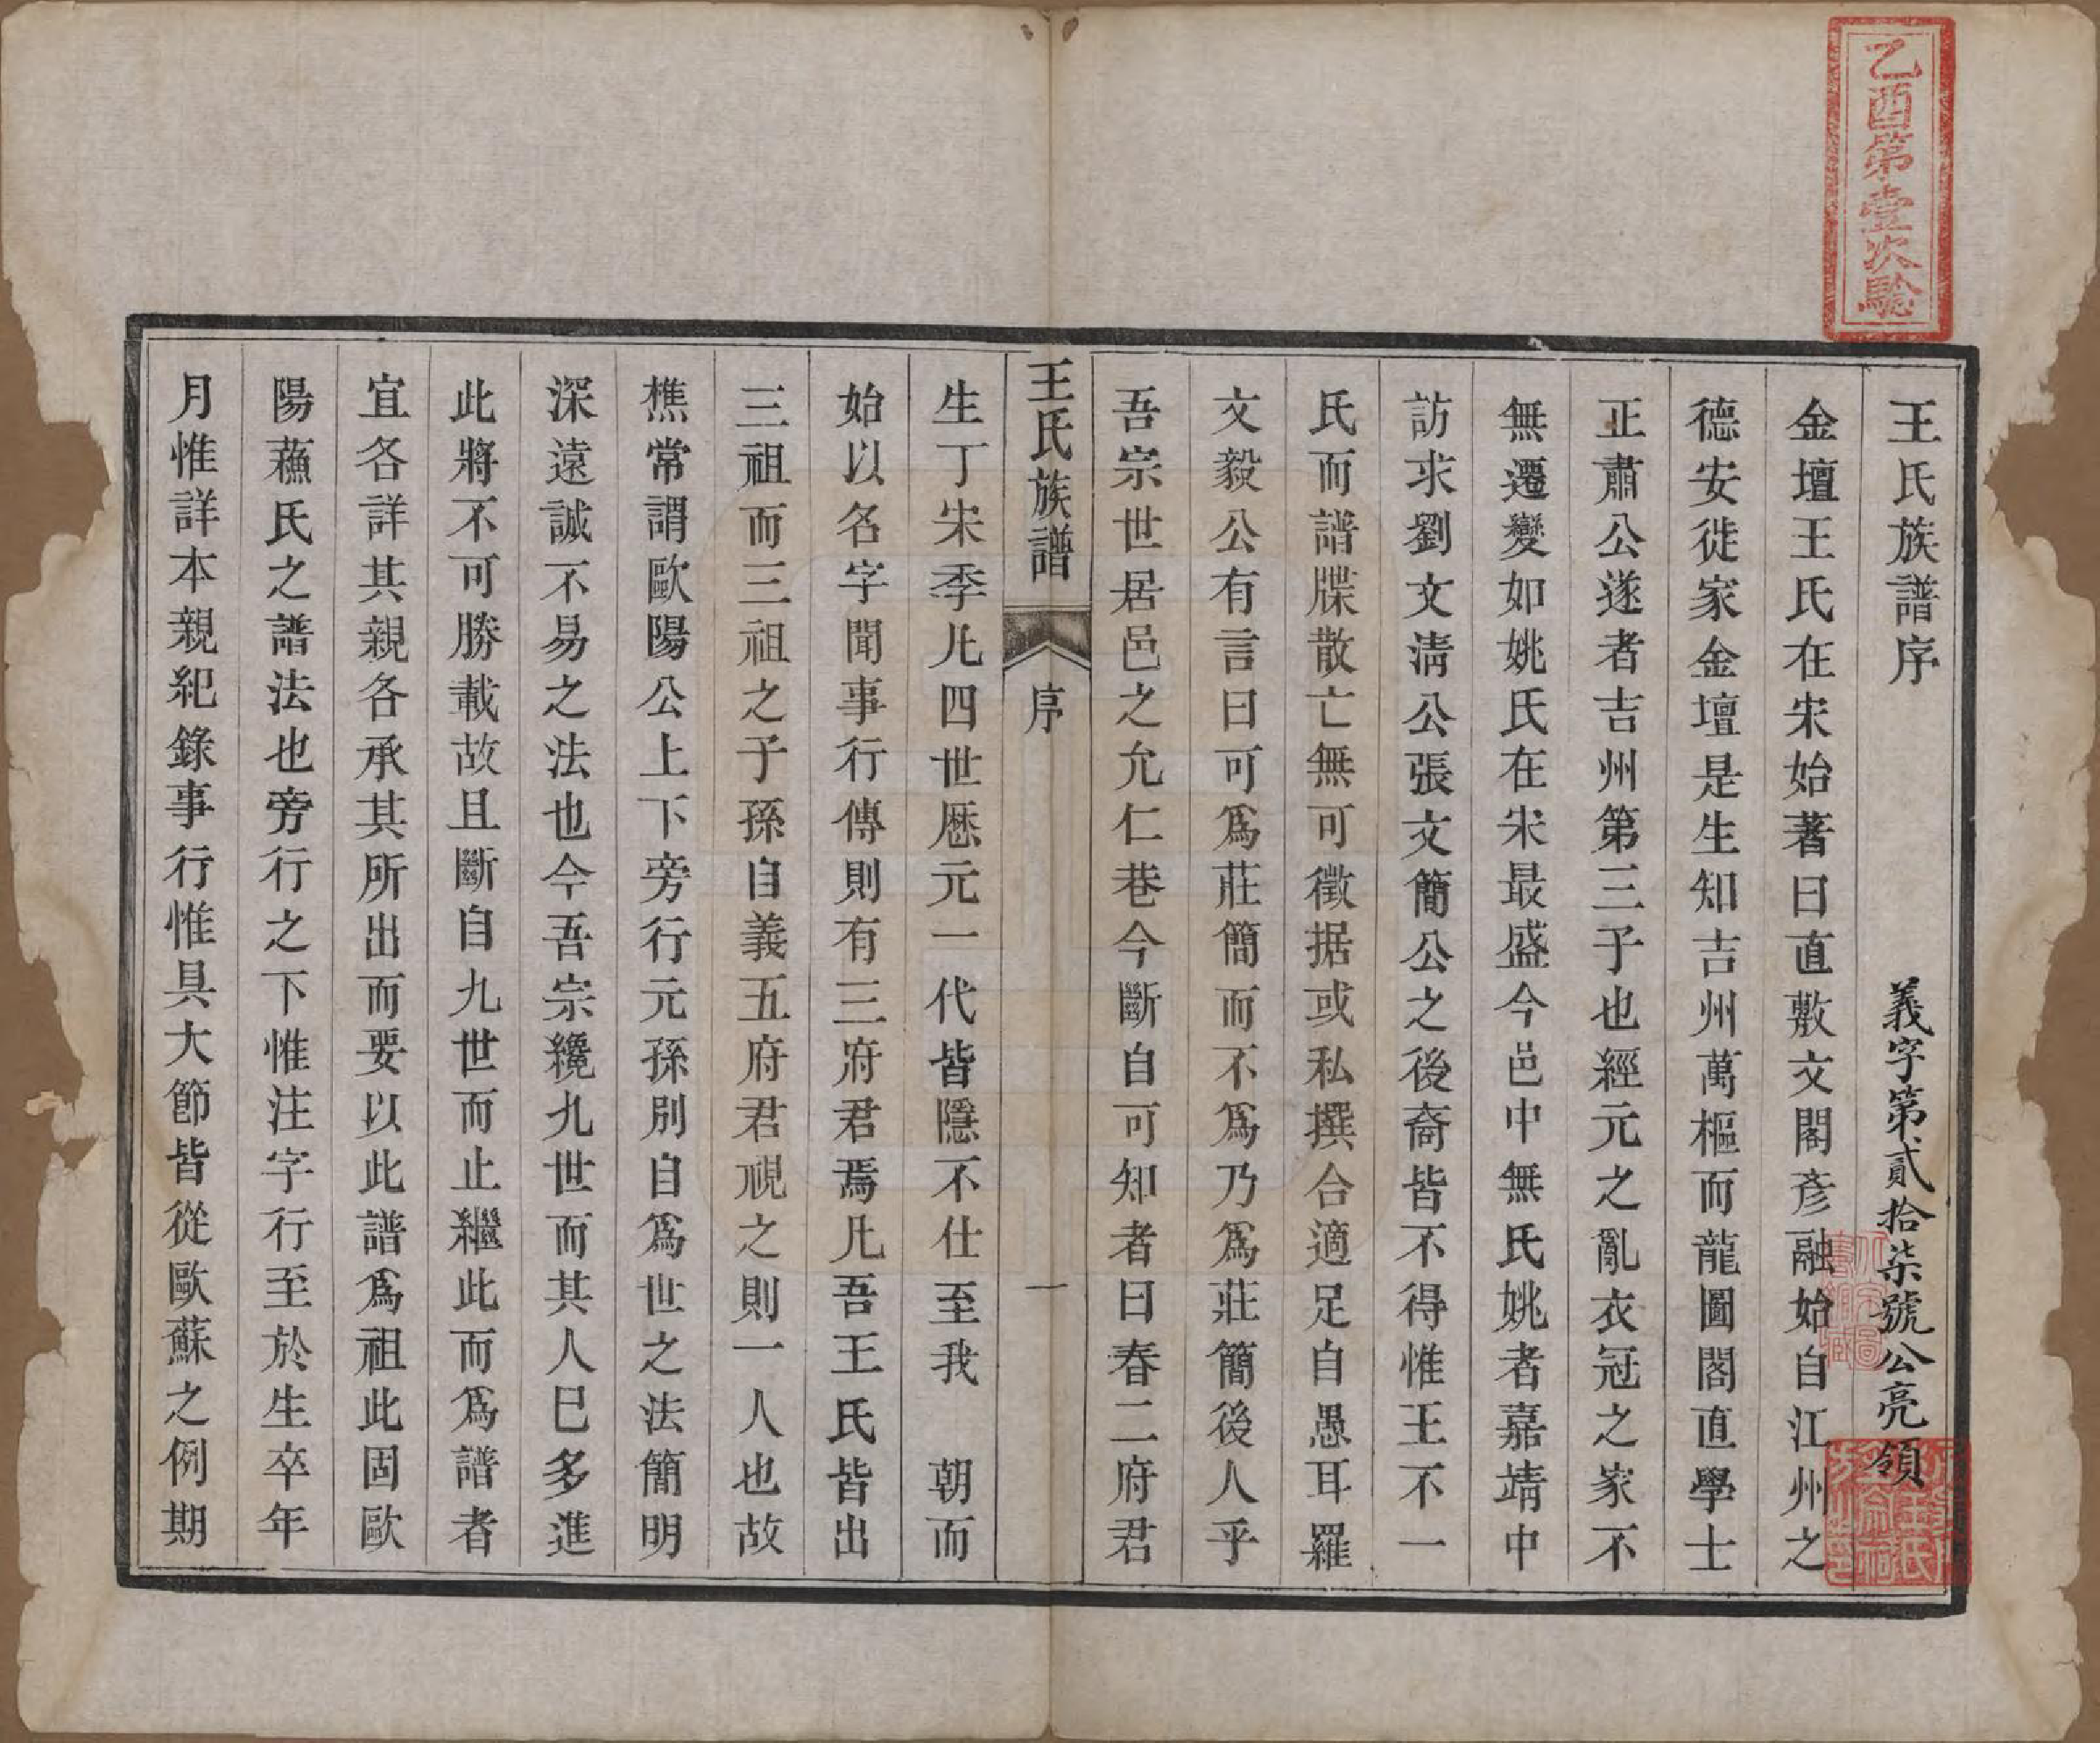 乙酉第壹次驗
王氏族譜序
義字第貳拾柒號公亮領
金壇王氏在宋始著曰直敷文閣彥融始自江州之
德安徙家金壇是生知吉州萬樞而龍圖閣直學士
正肅公遂者吉州第三子也經元之亂衣冠之家不
無遷變如姚氏在宋最盛今邑中無氏姚者嘉靖中
訪求劉文清公張文簡公之後裔皆不得惟王不一
氏而譜牒散亡無可徵据或私撰合適足自愚耳羅
文毅公有言曰可爲莊簡而不爲乃爲莊簡後人乎
吾宗世居邑之允仁巷今斷自可知者曰春二府君
王氏族譜
序
一
生丁宋季凡四世厯元一代皆隱不仕至我 朝而
始以名字聞事行傳則有三府君焉凡吾王氏皆出
三祖而三祖之子孫自義五府君視之則一人也故
樵常謂歐陽公上下旁行元孫別自爲世之法簡明
深遠誠不易之法也今吾宗纔九世而其人已多進
此將不可勝載故且斷自九世而止繼此而爲譜者
宜各詳其親各承其所出而要以此譜爲祖此固歐
陽蘓氏之譜法也旁行之下惟注字行至於生卒年
月惟詳本親紀錄事行惟具大節皆從歐蘇之例期